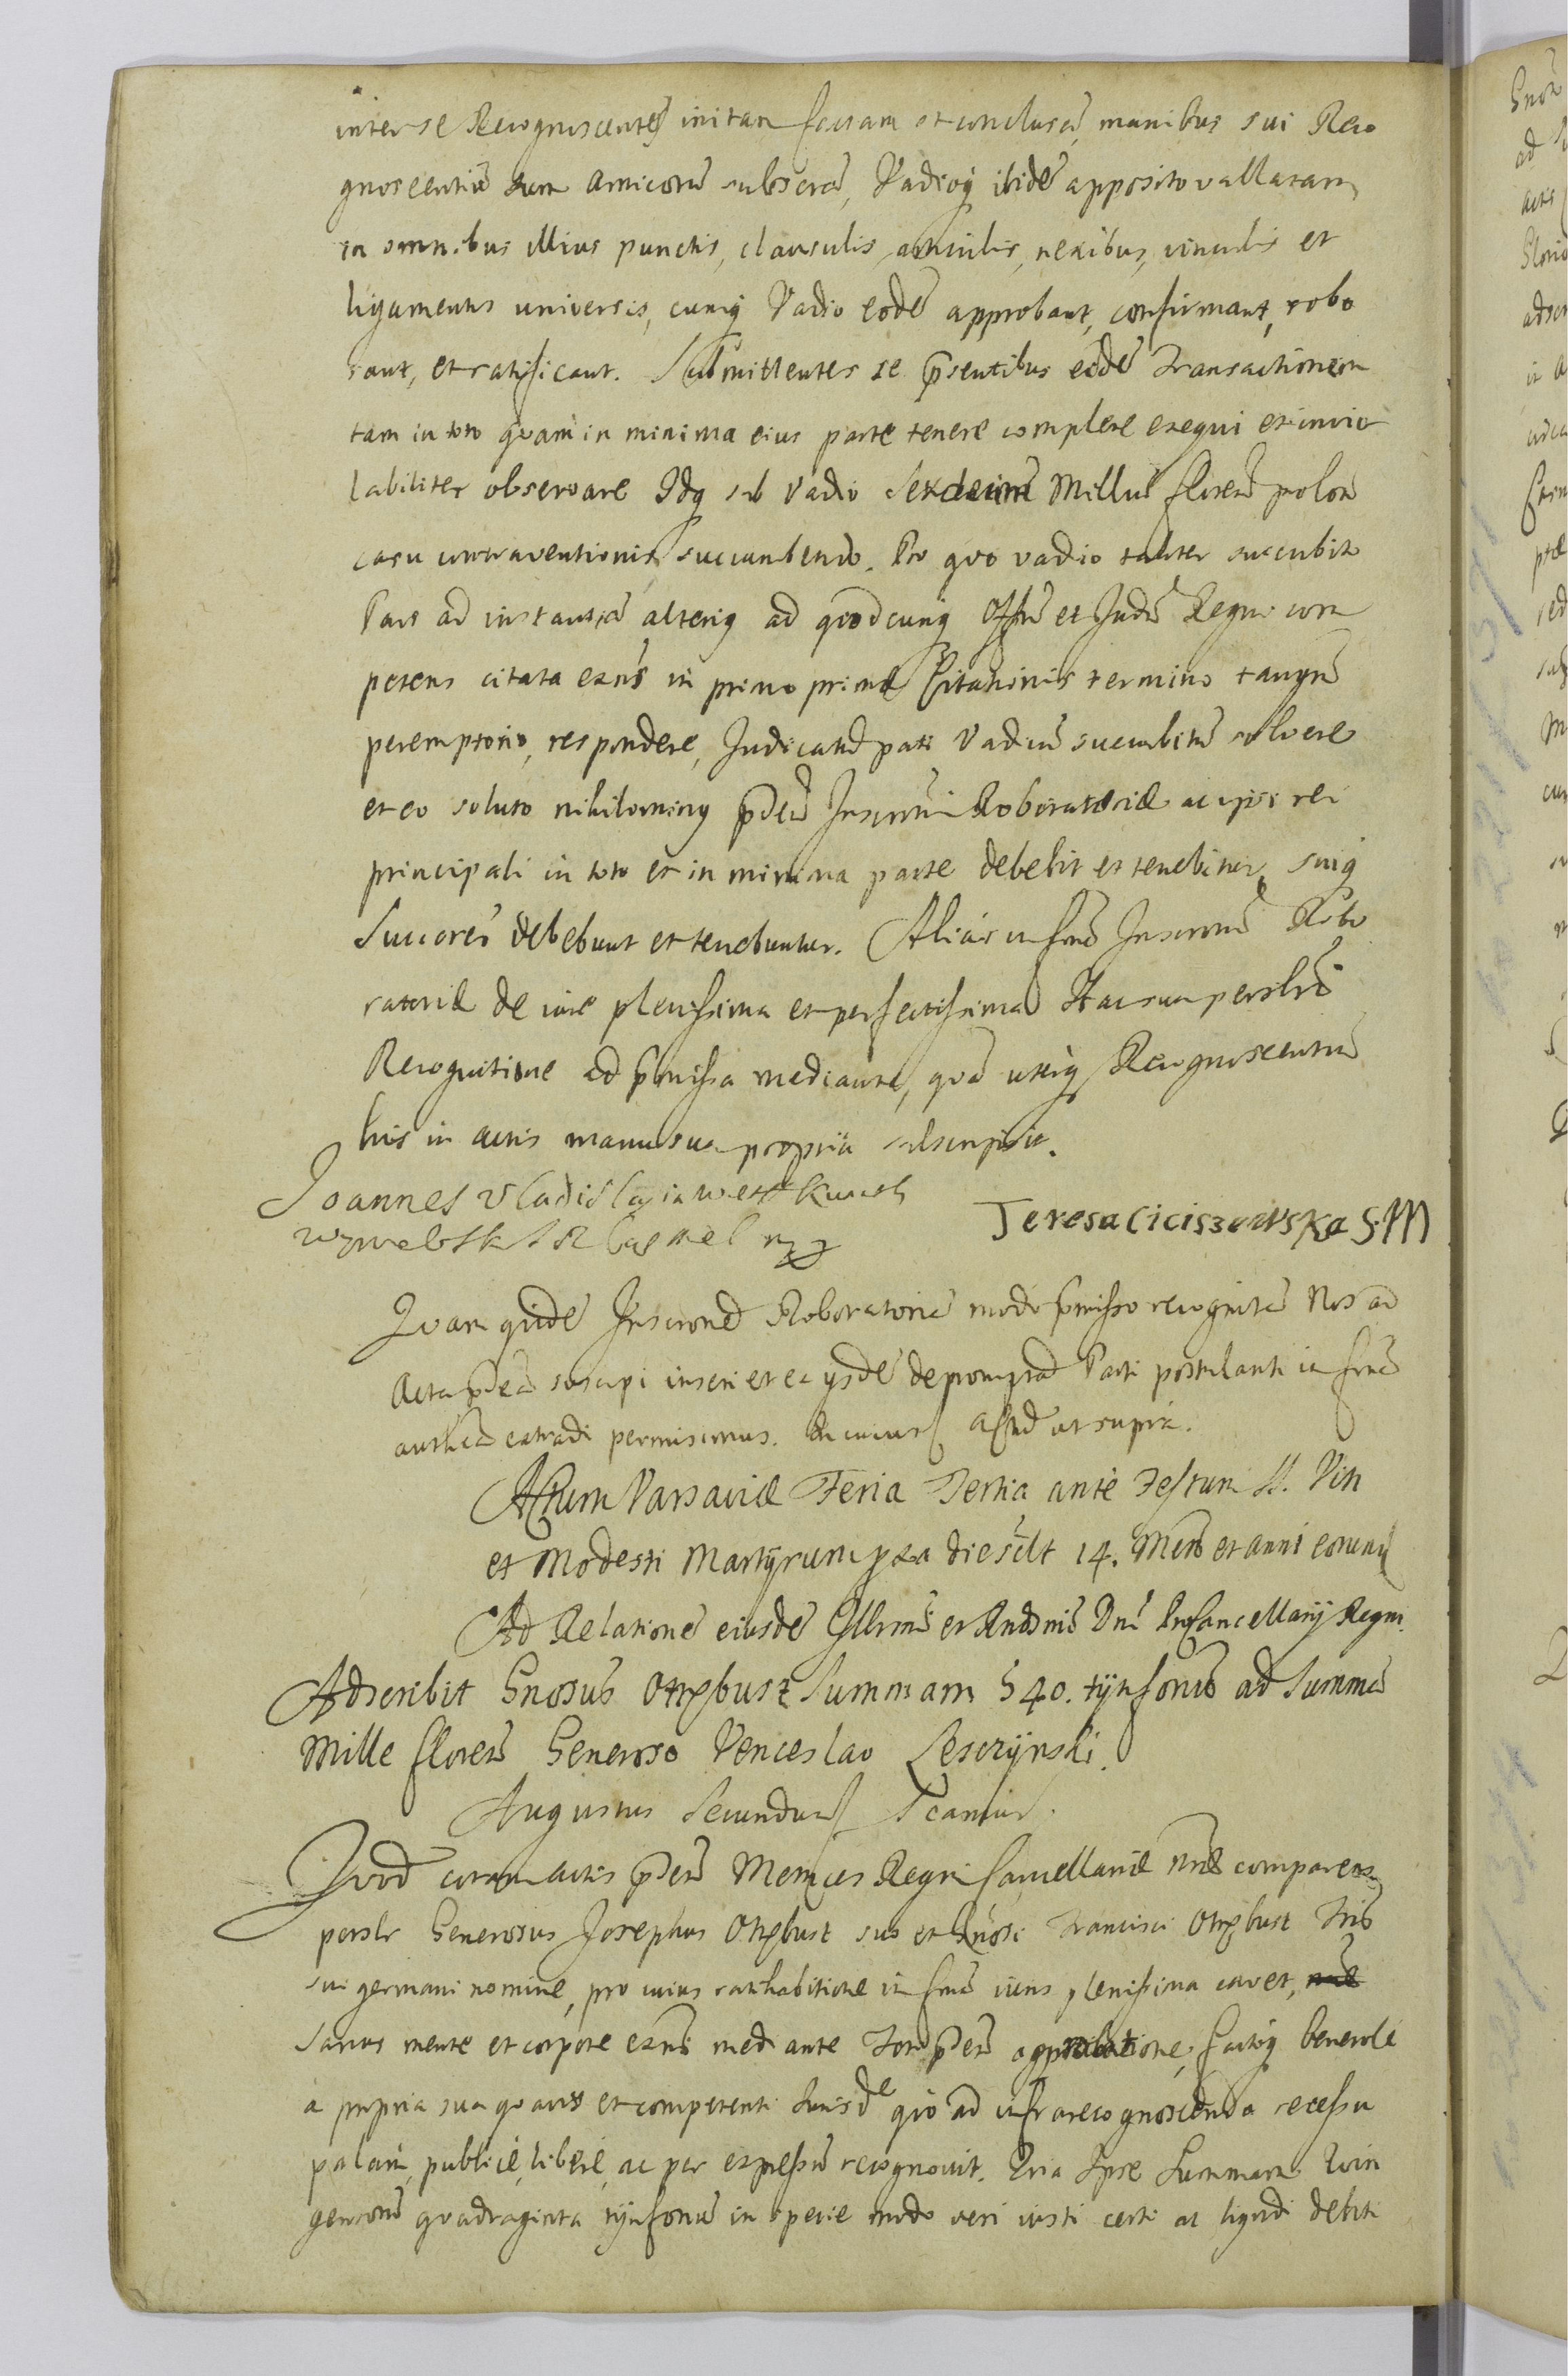 inter se Recognoscentes initam factam et conclusā manibus sui Reco
gnoscentiū tum amicorū subscrā, Vadioq ibidē apposito vallatam
in omnibus illius punctis, clausulis, articulis, nexibus, vinculis et
ligamentis universis, cumq Vadio eodē approbant, confirmant, robo
rant, et ratificant. Submittentes se p̄sentibus eidē Transactionem
tam in toto quam in minima eius parte tenere complere exequi et invio
labiliter observare Idq sub Vadio sexdecim Milliū florenō polon
casu contraventionis succumbendo. Pro quo vadio taliter succubito
Pars ad instantiā alterius ad quodcunq Offm et Judm Regni com
petens citata exns in primo primæ Citationis termino tanqm
peremptorio, respondere, Judicatū pati Vadium succubitū solvere
et eo soluto nihilominus p̄det Inscrōni Roboratoriæ ac ipsi rei
principali in toto et in minima parte debebit et tenebitur, suiq
Succores debebunt et tenebuntur. Alias in formā Inscronū Robo
ratoriæ de iure plenissima et perfectissima Hac sua personli
Recognitione ad p̄missa mediante, quā uterq Recognoscentiū
his in actis manu sua propria subscripsit.
Joannes Vladislaus
Teresa Ciciszewska S. M
Quam quidē Inscronē Roboratoriā modo p̄misso recognitā Nos ad
Acta p̄dca suscipi inscri et ex ijsdē depromptā Parti postulanti in formā
authcā extradi permisimus. In cuius Actū ut supra.
Actum Varsaviæ Feria Tertia ante Festum SS. Viti
et Modesti Martyrum pxa die sclt 14. Mens et anni eorund
Ad Relationē eiusdē Illrmi et Rndsmi Dni ProCancellarij Regni.
Adscribit Gnosus Otrębusz Summam 540. tynfonū ad Summā
Mille florenō Generoso Venceslao Lesczynski.
Augustus Secundus
Quod coram actis p̄det Metrices Regni Cancellariæ nræ comparens
persolr Generosus Josephus Otrębusz suo et Gnosi Francisci Otrębusz fris
sui germani nomine, pro cuius ratihabitione in formā iuris plenissima cavet,
sanus mente et corpore exns mediante approbatione, factoq benevole
a propria sua quavis et competenti Jurisde quo ad infra recognoscenda recessu
palam, publicè, liberè, ac per expressū recognovit. Quia Ipse Summam Quin
gentorū quadraginta tynfonū in specie modo veri iusti certi ac liquidi debiti